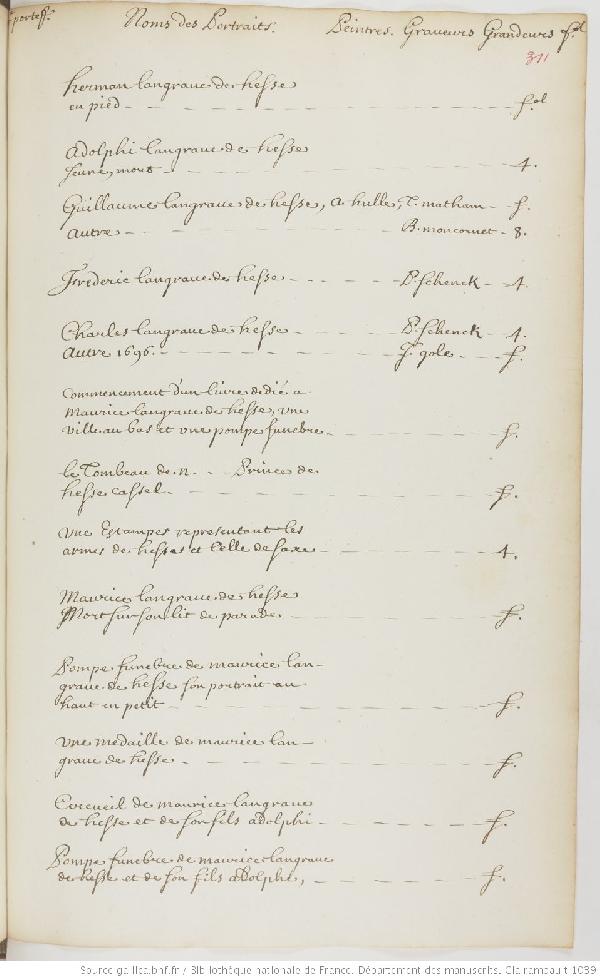 portef. Noms des Portraits. Peintres. Graveurs Grandeurs fol
311
herman langrave de hesse
en pied fol
Adolphe langrave de hesse
Jeune, mort 4.
Guillaume langrave de hesse, A. hulle, T. matham f.
autre B. moncornet 8.
Frederic langrave de hesse P. schenck 4.
Charles langrave de hesse P. schenck 4.
autre 1696. J. gole f.
commencement d'un livre dedié a
maurice langrave de hesse, vne
ville au bas et vne pompe funebre f.
le Tombeau de n. Prince de
hesse cassel f.
vne Estampes representant les
armes de hesses et Celle de saxe 4.
Maurice langrave de hesse
Mort sur son lit de parade. f.
Pompe funebre de maurice lan-
grave de hesse son portrait au
haut en petit f.
vne medaille de maurice lan-
grave de hesse f.
Cercueil de maurice langrave
de hesse et de son fils adolphi f.
Pompe funebre de maurice langrave
de hesse et de son fils adolphi, f.
Source gallica.bnf.fr / Bibliothèque nationale de France. Département des manuscrits. Clairambault 1039